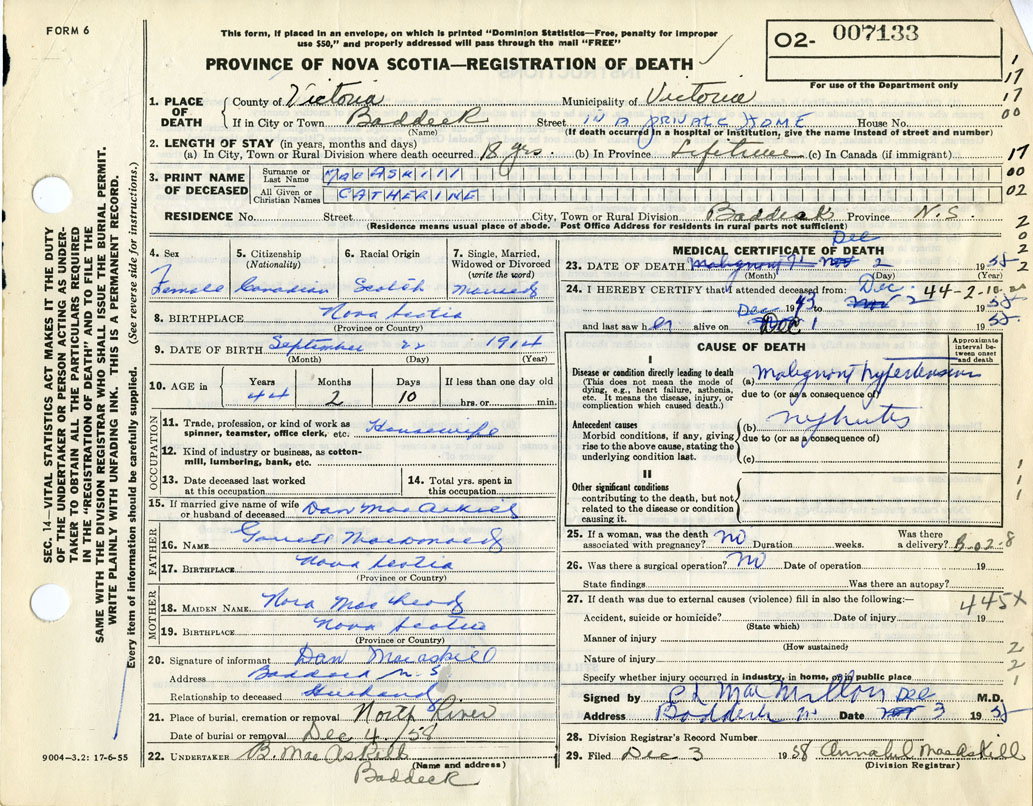 FORM 6
This form, if placed in an envelope, on which is printed "Dominion Statistics—Free, penalty for improper
use $50," and properly addressed will pass through the mail "FREE"
PROVINCE OF NOVA SCOTIA—REGISTRATION OF DEATH
02- 007133
For use of the Department only
1. PLACE OF DEATH County of Victoria Municipality of Victoria
If in City or Town Baddeck Street IN A PRIVATE HOME House No.
(Name) (If death occurred in a hospital or institution, give the name instead of street and number)
2. LENGTH OF STAY (in years, months and days)
(a) In City, Town or Rural Division where death occurred 18 yrs. (b) In Province Lifetime (c) In Canada (if immigrant)
3. PRINT NAME OF DECEASED
Surname or Last Name MacASKILL
All Given or Christian Names CATHERINE
RESIDENCE No. Street City, Town or Rural Division Baddeck Province N.S.
(Residence means usual place of abode. Post Office Address for residents in rural parts not sufficient)
4. Sex 5. Citizenship (Nationality) 6. Racial Origin 7. Single, Married, Widowed or Divorced (write the word)
Female Canadian Scotish Married
8. BIRTHPLACE Nova Scotia
(Province or Country)
9. DATE OF BIRTH September 22 1914
(Month) (Day) (Year)
10. AGE in Years Months Days If less than one day old
44 2 10 hrs. or min.
OCCUPATION
11. Trade, profession, or kind of work as spinner, teamster, office clerk, etc. Housewife
12. Kind of industry or business, as cotton-mill, lumbering, bank, etc.
13. Date deceased last worked at this occupation 14. Total yrs. spent in this occupation
15. If married give name of wife or husband of deceased Dan MacAskill
FATHER
16. NAME Garrett Macdonald
17. BIRTHPLACE Nova Scotia
(Province or Country)
MOTHER
18. MAIDEN NAME Nora MacLeod
19. BIRTHPLACE Nova Scotia
(Province or Country)
20. Signature of informant Dan Macaskill
Address Baddeck N.S
Relationship to deceased Husband
21. Place of burial, cremation or removal North River
Date of burial or removal Dec 4/58
22. UNDERTAKER B. MacAskill
(Name and address)
Baddeck
9004—3.2: 17-6-55
MEDICAL CERTIFICATE OF DEATH
Dec
23. DATE OF DEATH 2 19
(Month) (Day) (Year)
24. I HEREBY CERTIFY that I attended deceased from Dec 44-2-10
Dec 19 to 2 19
and last saw her alive on Dec 1 19
CAUSE OF DEATH
Approximate interval between onset and death
I
Disease or condition directly leading to death
(This does not mean the mode of dying, e.g., heart failure, asthenia, etc. It means the disease, injury, or complication which caused death.)
(a) Malignant hypertension
due to (or as a consequence of)
Antecedent causes
Morbid conditions, if any, giving rise to the above cause, stating the underlying condition last.
(b) Nephritis
due to (or as a consequence of)
(c)
II
Other significant conditions
contributing to the death, but not related to the disease or condition causing it.
25. If a woman, was the death associated with pregnancy? No Duration weeks. Was there a delivery? B-02-8
26. Was there a surgical operation? No Date of operation 19
State findings Was there an autopsy?
27. If death was due to external causes (violence) fill in also the following:—
445X
Accident, suicide or homicide? Date of injury 19
(State which)
Manner of injury
(How sustained)
Nature of injury
Specify whether injury occurred in industry, in home, or in public place
Signed by C L MacMillan M.D.
Address Baddeck NS Date Dec 3 19
28. Division Registrar's Record Number
29. Filed Dec 3 1958 Annabel MacAskill
(Division Registrar)
SEC. 14—VITAL STATISTICS ACT MAKES IT THE DUTY
OF THE UNDERTAKER OR PERSON ACTING AS UNDER-
TAKER TO OBTAIN ALL THE PARTICULARS REQUIRED
IN THE "REGISTRATION OF DEATH" AND TO FILE THE
SAME WITH THE DIVISION REGISTRAR WHO SHALL ISSUE THE BURIAL PERMIT.
WRITE PLAINLY WITH UNFADING INK. THIS IS A PERMANENT RECORD.
Every item of information should be carefully supplied. (See reverse side for instructions.)
1
17
17
00
17
00
02
2
0
2
2
1
1
1
2
2
1